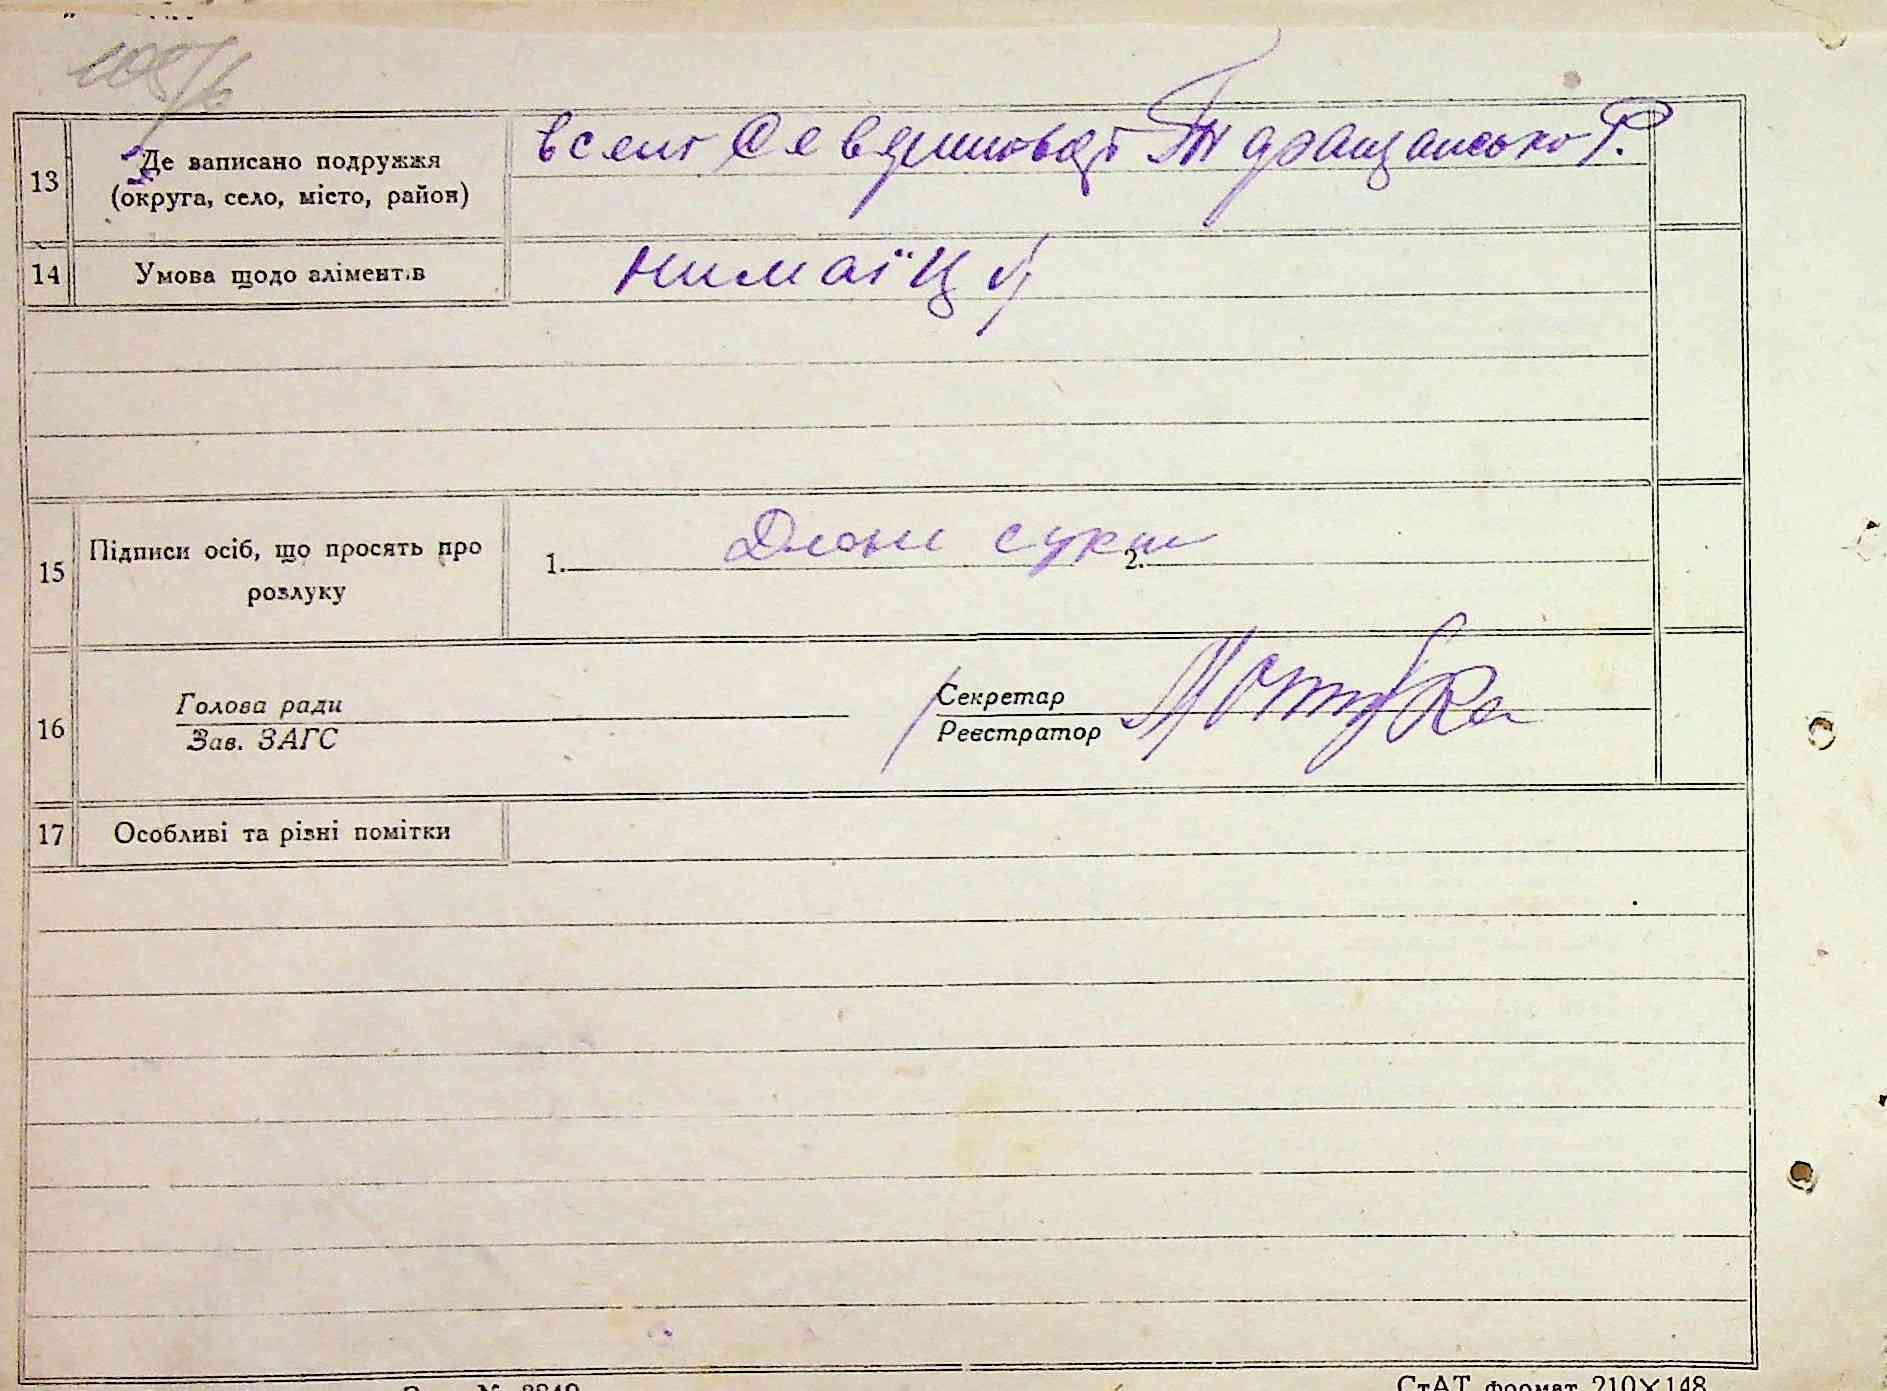 105/6
13
Де записано подружжя
(округа, село, місто, район)
в селі Севериновці Таращансько Р.
14
Умова щодо аліментів
15
Підписи осіб, що просять про
розлуку
1.
2.
16
Голова ради
Зав. ЗАГС
Секретар
Реєстратор
17
Особливі та різні помітки
СтАТ формат 210×148